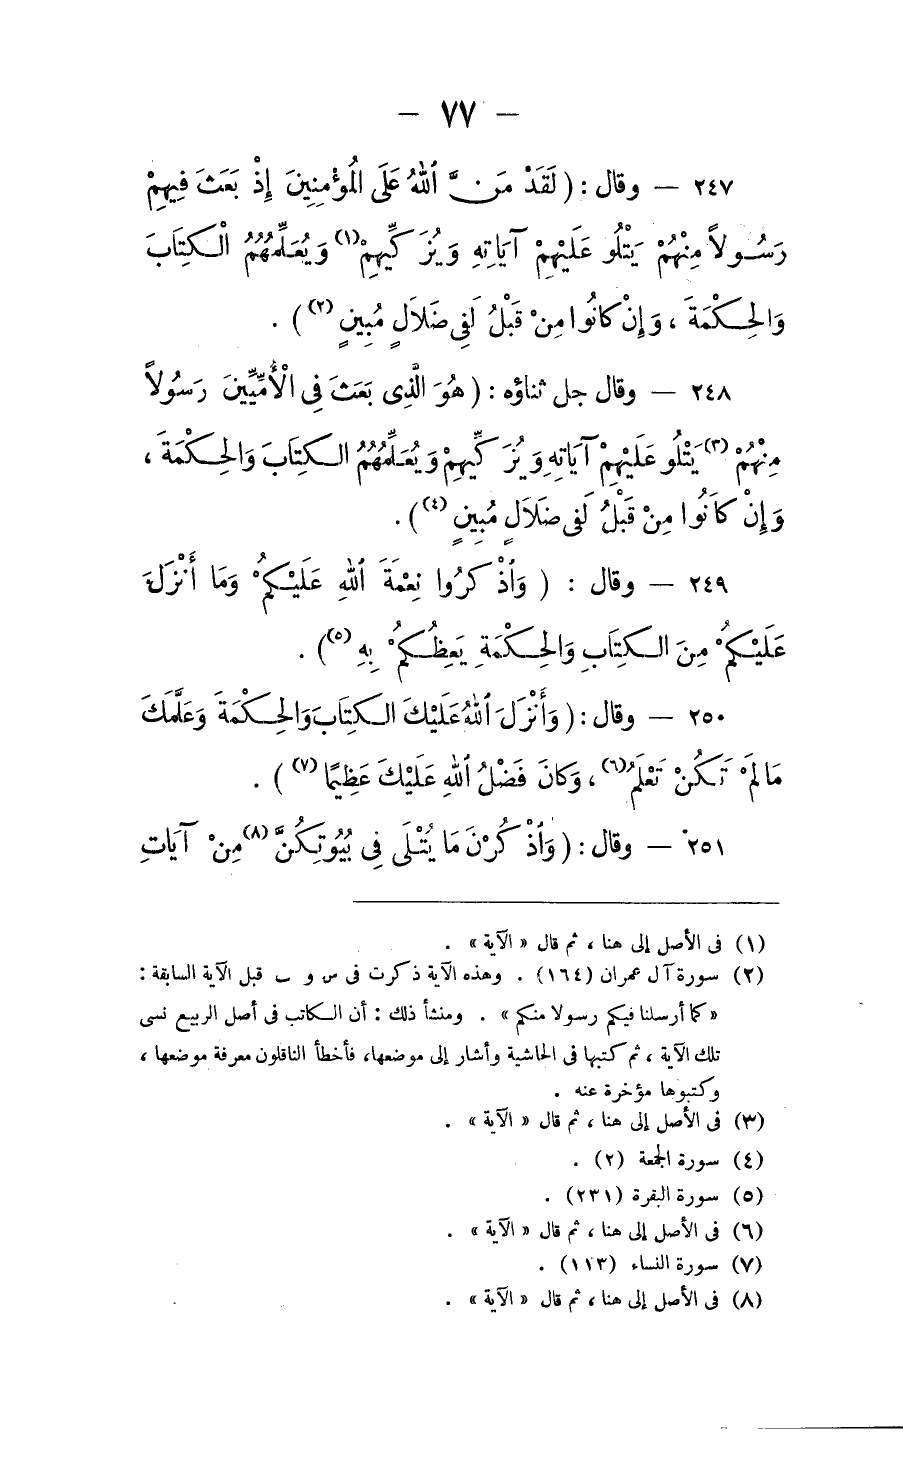 — ٧٧ —
٢٤٧ — وقال : ( لَقَدْ مَنَّ ٱللهُ عَلَى الْمُؤْمِنِينَ إِذْ بَعَثَ فِيهِمْ
رَسُولاً مِنْهُمْ يَتْلُو عَلَيْهِمْ آيَاتِهِ وَيُزَكِّيهِمْ(١) وَيُعَلِّمُهُمُ الْكِتَابَ
وَالْحِكْمَةَ ، وَإِنْ كَانُوا مِنْ قَبْلُ لَفِى ضَلَالٍ مُبِينٍ (٢) ) .
٢٤٨ — وقال جل ثناؤه : ( هُوَ الَّذِى بَعَثَ فِى الْأُمِّيِّينَ رَسُولاً
مِنْهُمْ (٣) يَتْلُو عَلَيْهِمْ آيَاتِهِ وَيُزَكِّيهِمْ وَيُعَلِّمُهُمُ الكِتَابَ وَالحِكْمَةَ ،
وَإِنْ كَانُوا مِنْ قَبْلُ لَفِى ضَلَالٍ مُبِينٍ (٤) ) .
٢٤٩ — وقال : ( وَٱذْكُرُوا نِعْمَةَ ٱللهِ عَلَيْكُمْ وَمَا أَنْزَلَ
عَلَيْكُمْ مِنَ الكِتَابِ وَالحِكْمَةِ يَعِظُكُمْ بِهِ (٥) ) .
٢٥٠ — وقال : ( وَأَنْزَلَ ٱللهُ عَلَيْكَ الكِتَابَ وَالحِكْمَةَ وَعَلَّمَكَ
مَا لَمْ تَكُنْ تَعْلَمُ(٦) ، وَكَانَ فَضْلُ ٱللهِ عَلَيْكَ عَظِيمًا (٧) ) .
٢٥١ — وقال : ( وَٱذْكُرْنَ مَا يُتْلَى فِى بُيُوتِكُنَّ (٨) مِنْ آيَاتِ
(١) فى الأصل إلى هنا ، ثم قال « الآية » .
(٢) سورة آل عمران (١٦٤) . وهذه الآية ذكرت فى س و ب قبل الآية السابقة :
« كما أرسلنا فيكم رسولا منكم » . ومنشأ ذلك : أن الكاتب فى أصل الربيع نسى
تلك الآية ، ثم كتبها فى الحاشية وأشار إلى موضعها، فأخطأ الناقلون معرفة موضعها ،
وكتبوها مؤخرة عنه .
(٣) فى الأصل إلى هنا ، ثم قال « الآية » .
(٤) سورة الجمعة (٢) .
(٥) سورة البقرة (٢٣١) .
(٦) فى الأصل إلى هنا ، ثم قال « الآية » .
(٧) سورة النساء (١١٣) .
(٨) فى الأصل إلى هنا ، ثم قال « الآية » .